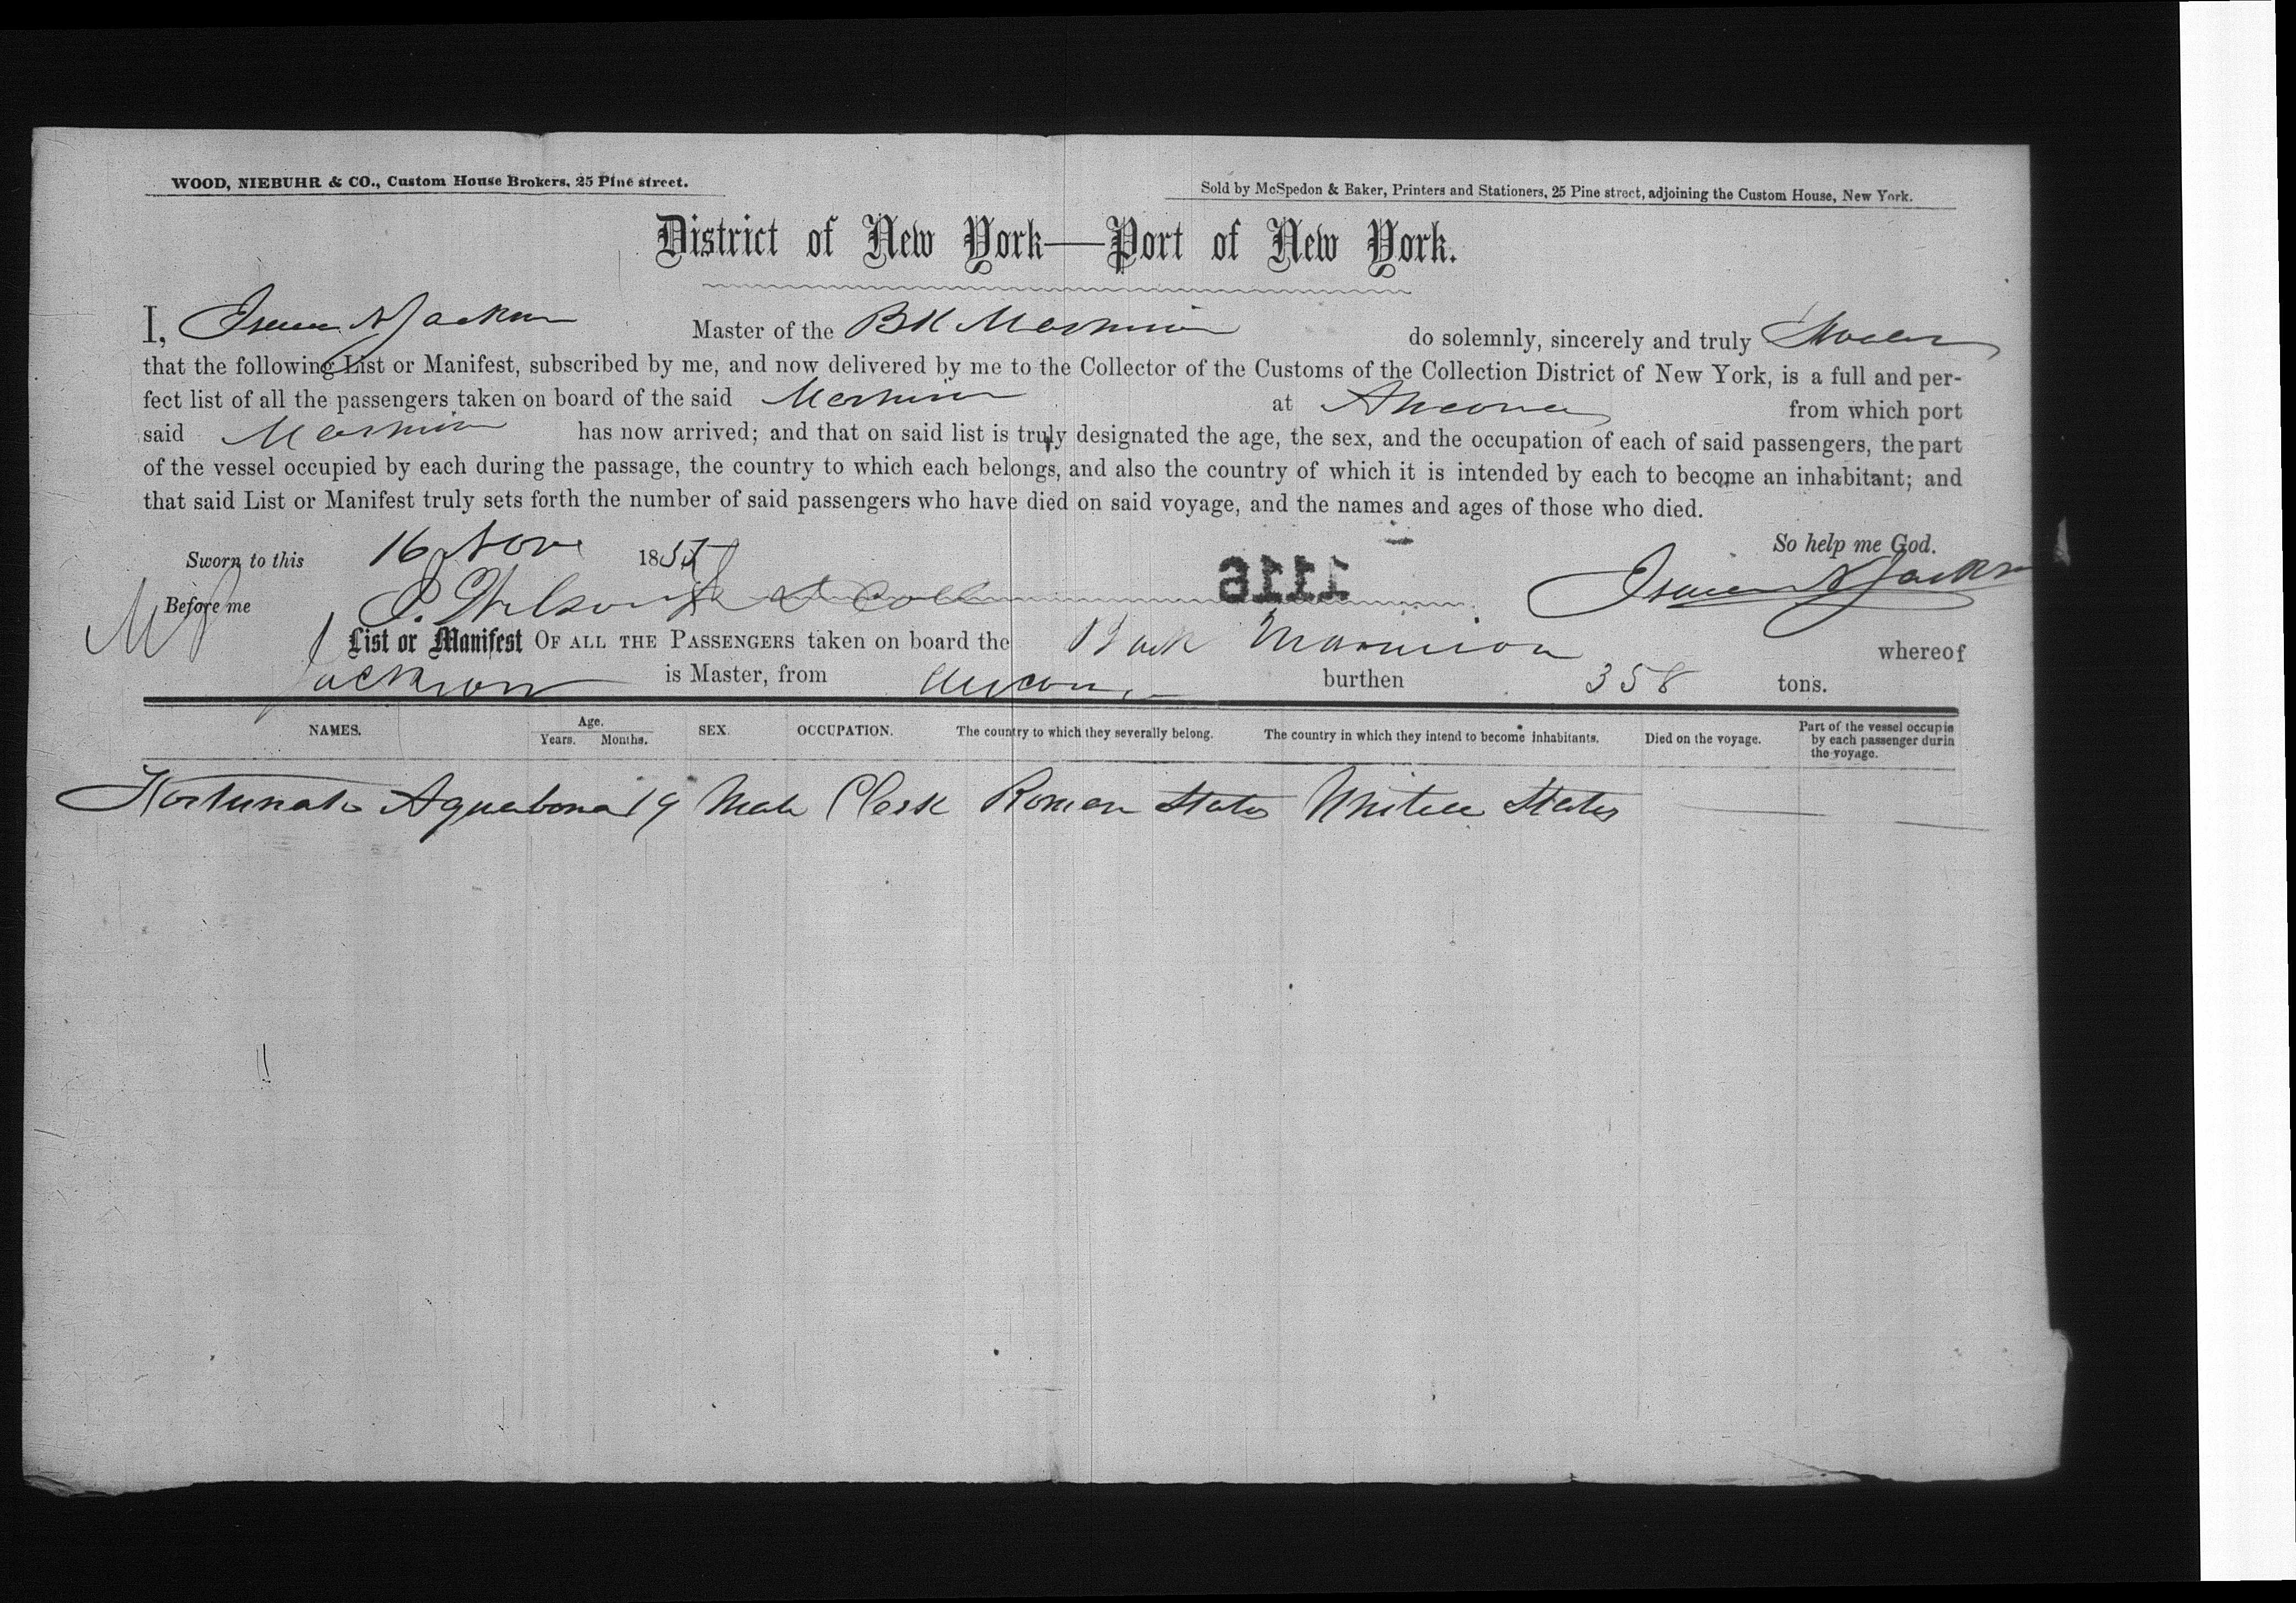 WOOD, NIEBUHR & CO., Custom House Brokers, 25 Pine street.
Sold by McSpedon & Baker, Printers and Stationers, 25 Pine street, adjoining the Custom House, New York.
District of New York—Port of New York.
I, Jackson Master of the Bk Marmion do solemnly, sincerely and truly Swear
that the following List or Manifest, subscribed by me, and now delivered by me to the Collector of the Customs of the Collection District of New York, is a full and per-
fect list of all the passengers taken on board of the said Marmion at Ancona from which port
said Marmion has now arrived; and that on said list is truly designated the age, the sex, and the occupation of each of said passengers, the part
of the vessel occupied by each during the passage, the country to which each belongs, and also the country of which it is intended by each to become an inhabitant; and
that said List or Manifest truly sets forth the number of said passengers who have died on said voyage, and the names and ages of those who died.
So help me God.
Sworn to this 16 Nov 1855
1116
Jackson
Before me P. Wilson D Coll
List or Manifest OF ALL THE PASSENGERS taken on board the Bark Marmion whereof
Jackson is Master, from Ancona burthen 358 tons.
NAMES. Age. Years. Months. SEX. OCCUPATION. The country to which they severally belong. The country in which they intend to become inhabitants. Died on the voyage. Part of the vessel occupie
by each passenger durin
the voyage.
Fortunato Aquabona 19 Male Clerk Roman States United States